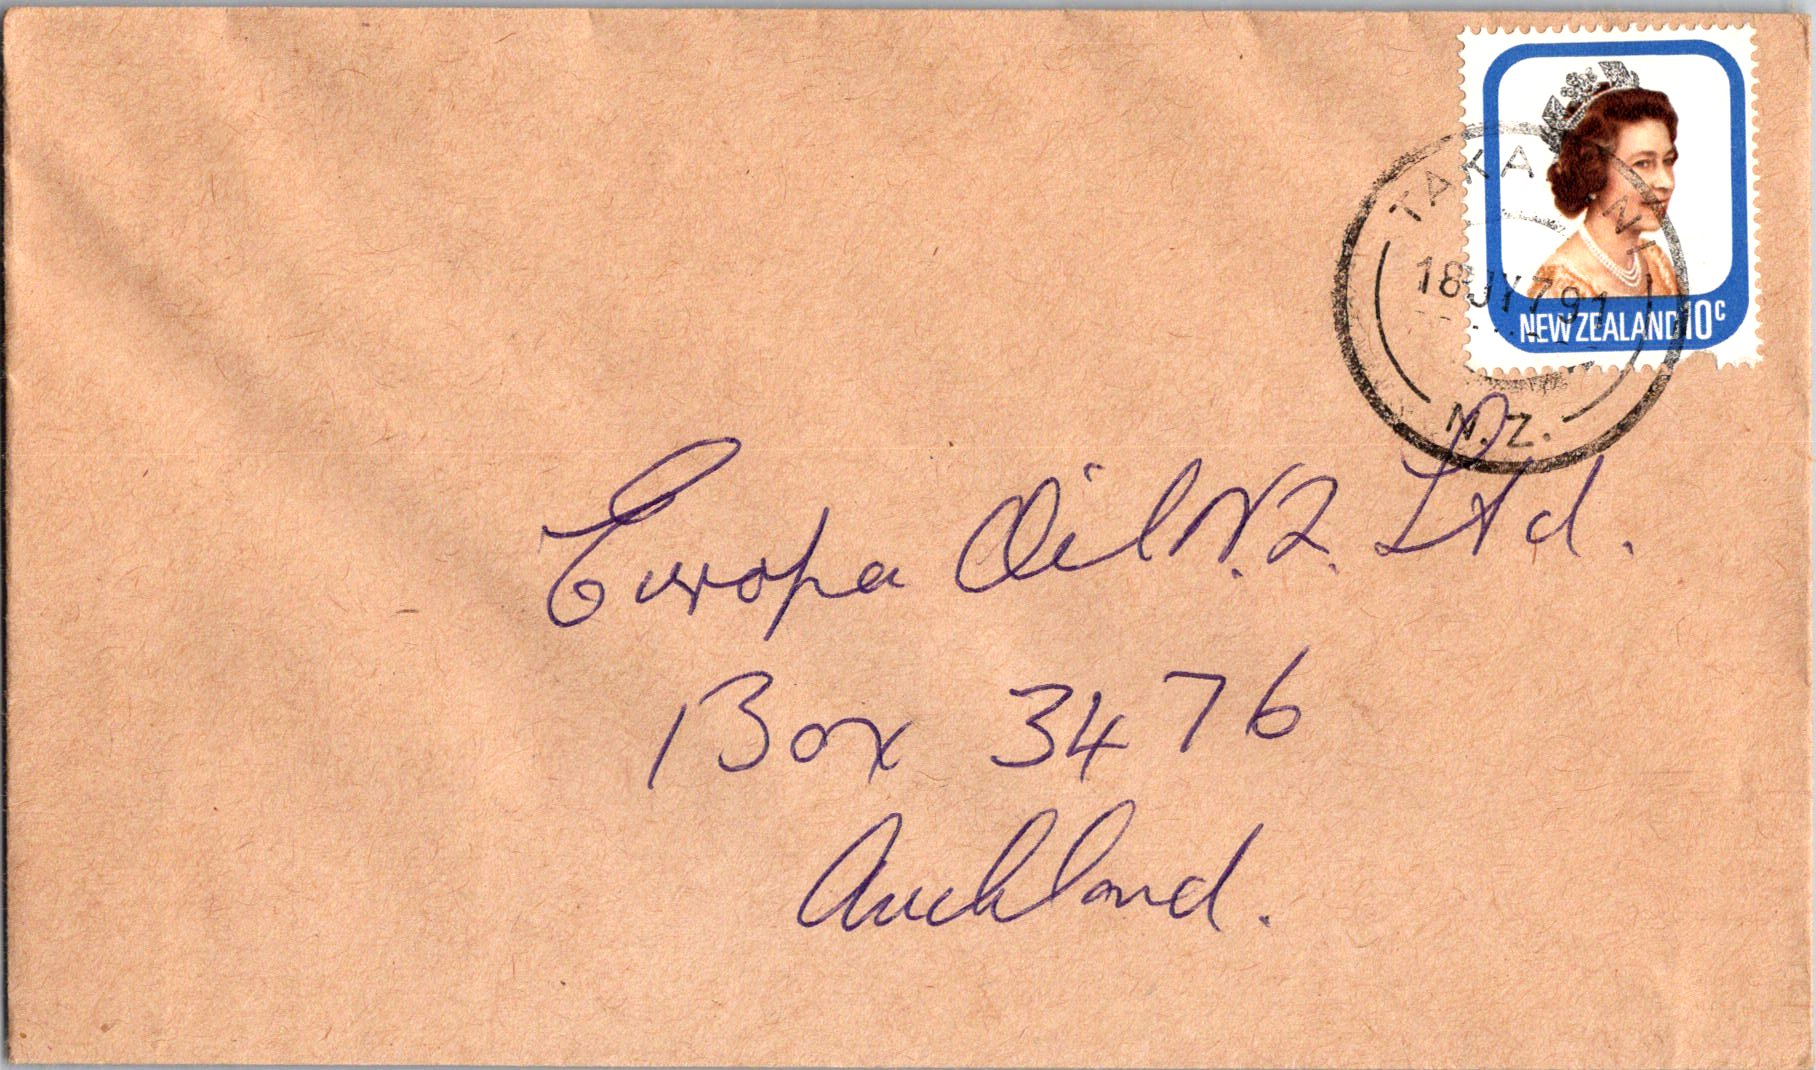 TAKANINI
18 JY 79 1
N.Z.
NEW ZEALAND 10c
Europa Oil N.Z. Ltd.
Box 3476
Auckland.